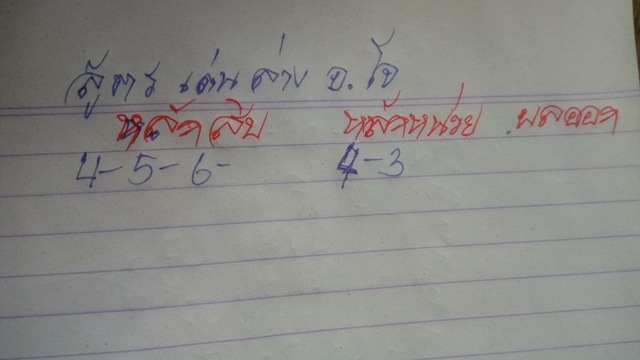 สูตร เด่น ล่าง อ.โจ
หลักสิบ หลักหน่วย ผลออก
4-5-6- 4-3